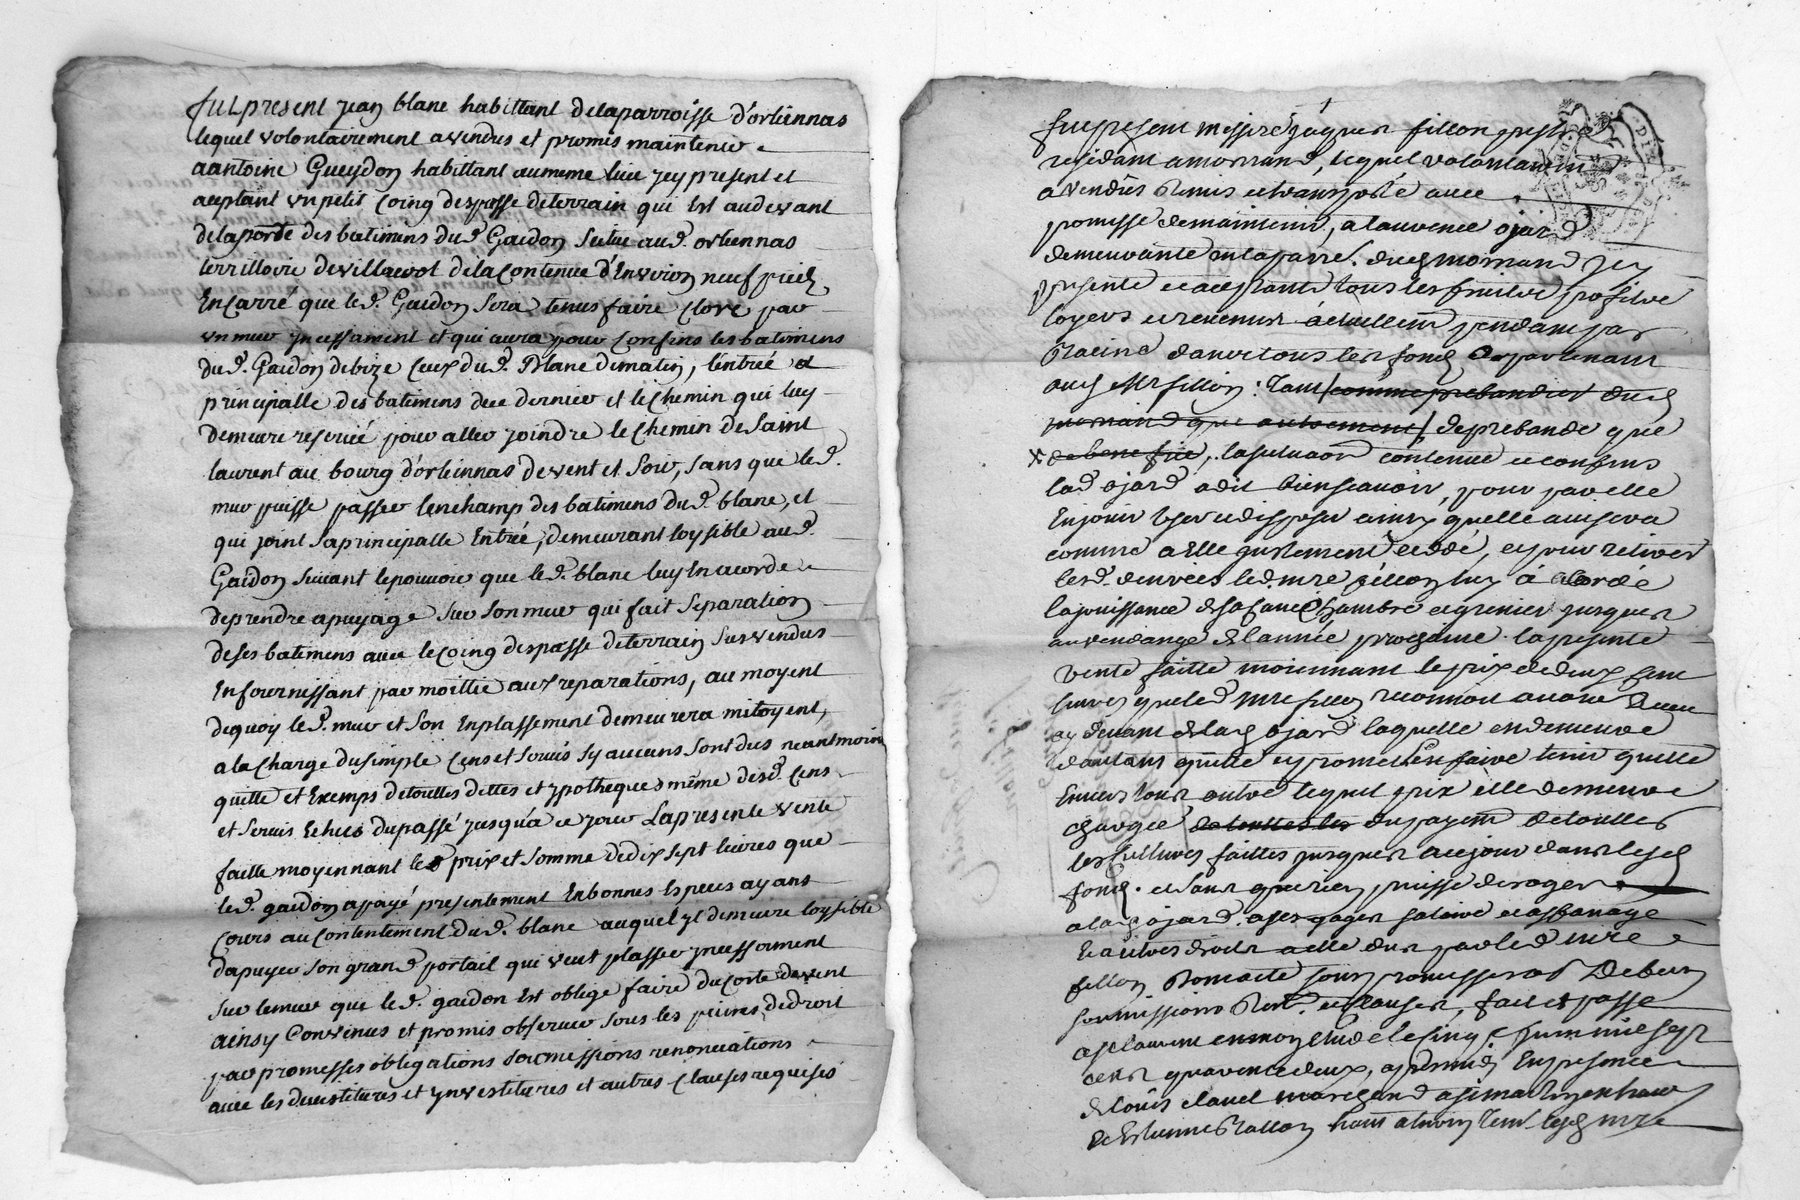 fut present jean blanc habittant delaparroisse d'orliennas
lequel volontairement avendus et promis maintenir
aantoine Gueydon habittant aumeme lieu jcy present et
aceptant vn petit Coing despasse deterrain qui Est audevant
delaporte des batimens dud. Gaidon Scitué aud. orliennas
terrillovie devillavot delacontenue d'Environ neuf pieds
Encarré que led. Gaidon Sera tenus faire Clore par
vn mur jncessament et qui aura pour Confins les batimens
dud. Gaidon debize Ceux dud. Blanc dematin, lentrée et
principalle des batimens dece dernier et leChemin qui luy
demeure reservé pour aller joindre leChemin deSaint
laurent au bourg d'orliennas devent et Soir, sans que led.
mur puisse passer lenchamp des batimens dud. blanc, et
qui joint Saprincipalle Entrée, demeurant loysible aud.
Gaidon Suivant lepouvoir que led. blanc luy En acorde
deprendre apuyage sur Son mur qui fait Separation
deses batimens avec leCoing despasse deterrain Susvendus
Enfournissant par moittie aux reparations, au moyent
dequoy led. mur et Son Enplassement demeurera mitoyent,
alaCharge dusimple Cens et Servis Sy aucuns sont dus neantmoins
quitte et Exemps detouttes dettes et ypotheques même desd. Cens
et Servis Echus dupassé jusqu'a ce jour Lapresente vente
faitte moyennant le prix et Somme dedix sept livres que
led. gaidon apayé presentement Enbonnes Especes ayans
Cours auContentement dud. blanc auquel yl demeure loysible
dapuyer Son grand portail qui veut plasser jncessament
sur lemur que led. gaidon Est obligé faire ducoté devent
ainsy Convenus et promis observer Sous les peines dedroit
par promesses obligations Soumissions renonciations
avec les devestitures et ynvestitures et autres Clauses requises
fut present messire jaques fillon prestre
residant amornand, lequel volontairemt
avendus Remis et transporté avec
promesse demaintenir, alaurence ojard
demeurante en laparre. dud mornand jcy
presente et aceptante tous les fruits profits
loyers et revenus pendant par
Racine dans tous les fonds apartenant
aud Mre fillon: Tant comme prebandier dud
mornand que autrement, deprebande que
debenefice, lasituaon contenue et confins
lad ojard a dit bien scavoir, pour par elle
En jouir user et disposer ainsy quelle avisera
comme a Elle justement cedé, et pour retirer
lesd. denrées led. mre fillon luy a acordé
lajouissance desa cave Chambre et grenier jusques
auxvendange de lannée prochaine. lapresente
vente faitte moiennant le prix de deux cent
livres que led mre fillon reconnoit avoir Receu
cy devant de lad ojard laquelle en demeure
dautans quitte et promet len faire tenir quitte
Envers tous outre lequel prix elle demeure
chargée detouttes les du payemt detouttes
les Cultures faittes jusques acejour dans lesd
fonds. et sans que rien puisse deroger
alad ojard. ases gages salaire
Et autres droits a elle dus par led mre
fillon
soumissions Renon. et clauses, fait et passé
ase laurent en mon Etude le cinq Juin mil sept
cents quarente deux, apresmidy Enpresence
de louis clavel marchand
et Etienne Rallon